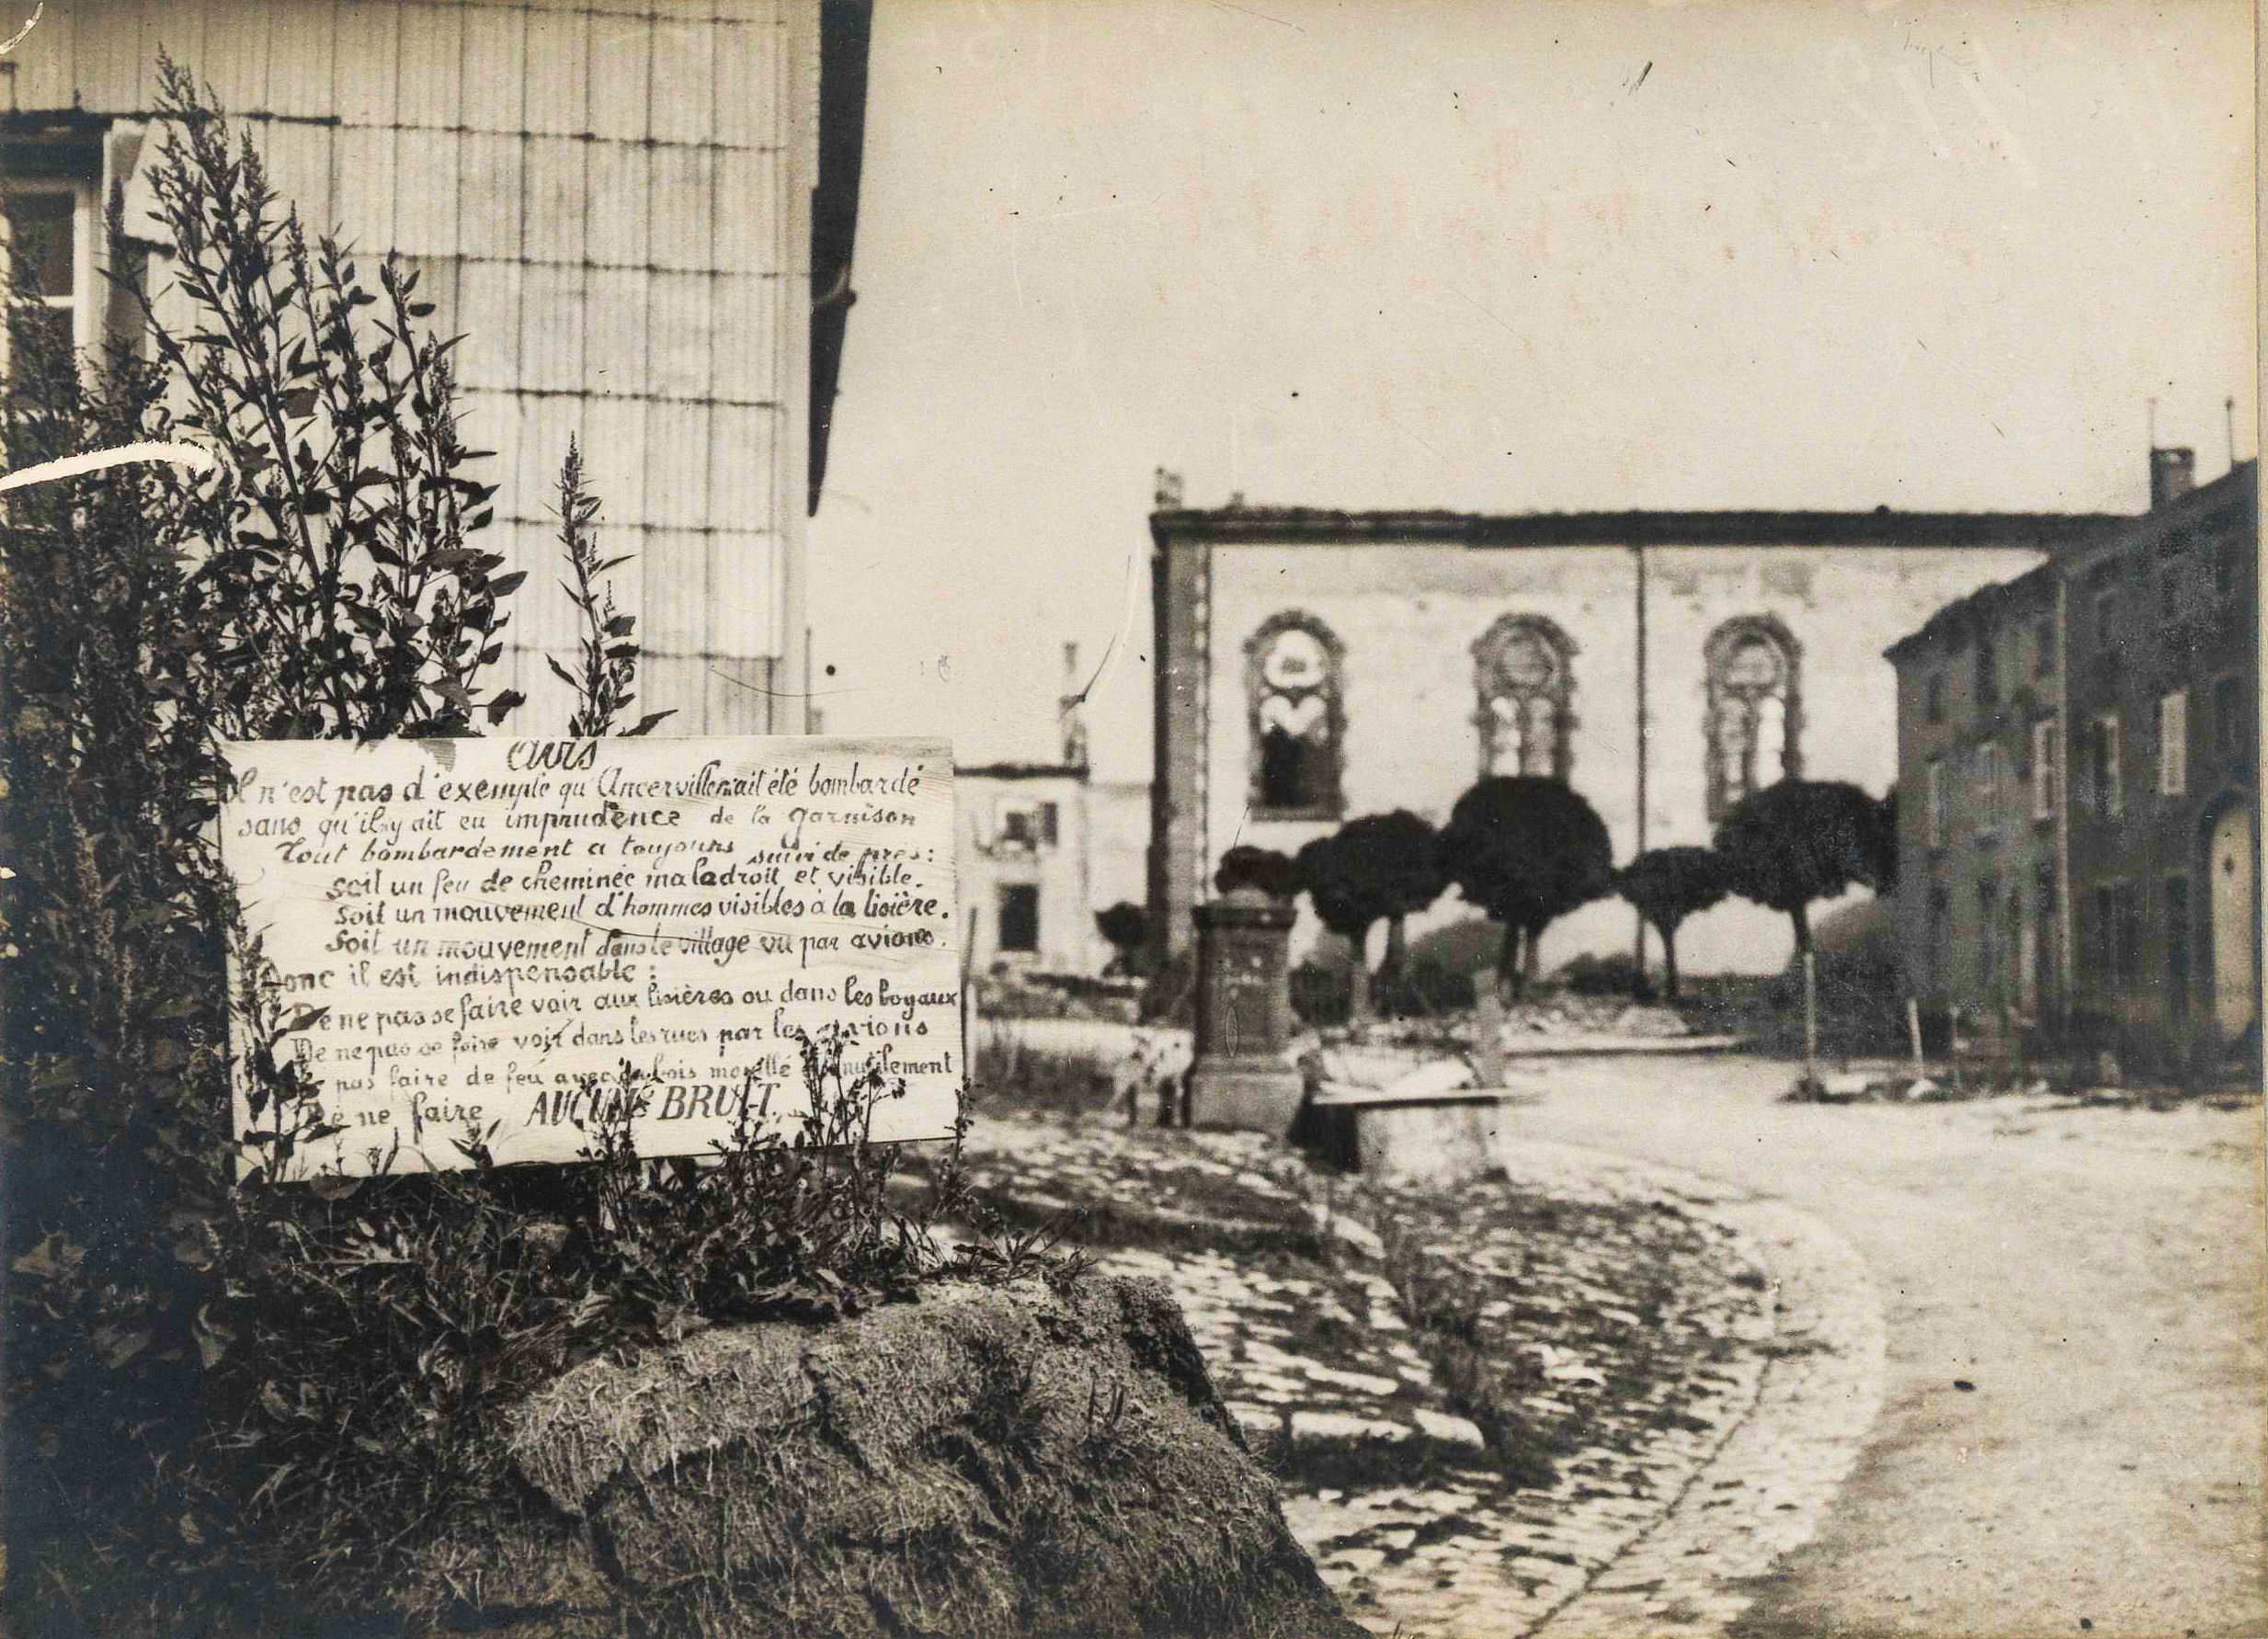 Avis
Il n'est pas d'exemple qu'Ancerviller ait été bombardé
sans qu'il y ait eu imprudence de la garnison
Tout bombardement a toujours suivi de près :
soit un feu de cheminée maladroit et visible.
soit un mouvement d'hommes visibles à la lisière.
soit un mouvement dans le village vu par avions.
Donc il est indispensable :
De ne pas se faire voir aux lisières ou dans les boyaux
De ne pas se faire voir dans les rues par les avions
pas faire de feu avec bois mouillé inutilement
De ne faire AUCUN BRUIT.